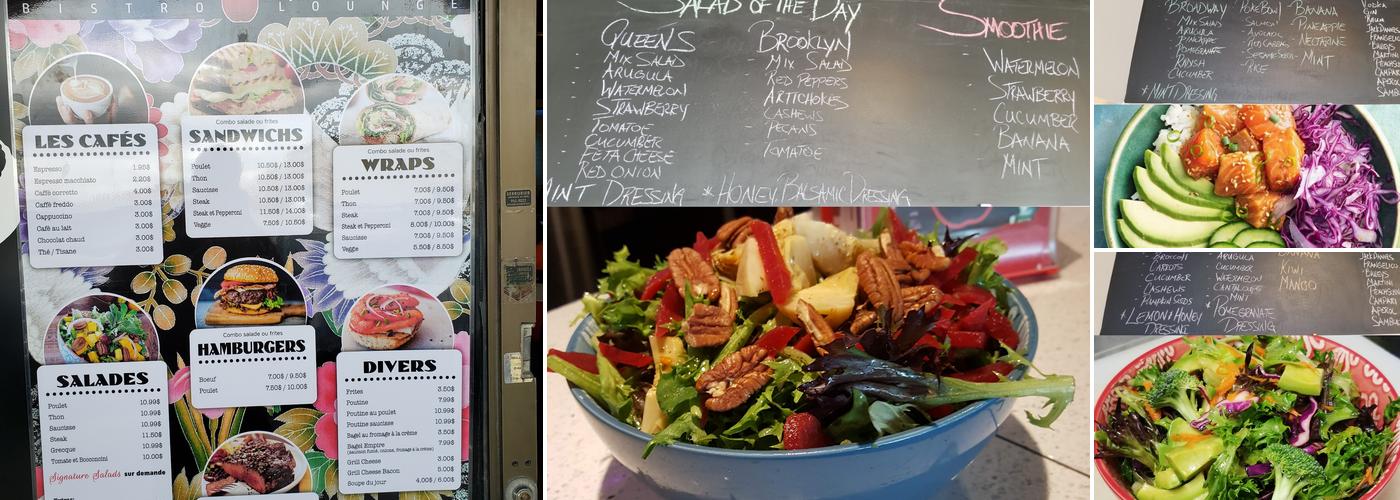 BISTRO LOUNGE
LES CAFÉS
Espresso 1.95$
Espresso macchiato 2.20$
Caffé corretto 4.00$
Caffé freddo 3.00$
Cappuccino 3.00$
Café au lait 3.00$
Chocolat chaud 3.00$
Thé / Tisane 3.00$
Combo salade ou frites
SANDWICHS
Poulet 10.50$ / 13.00$
Thon 10.50$ / 13.00$
Saucisse 10.50$ / 13.00$
Steak 10.50$ / 13.00$
Steak et Pepperoni 11.50$ / 14.00$
Veggie 7.50$ / 10.00$
Combo salade ou frites
WRAPS
Poulet 7.00$ / 9.50$
Thon 7.00$ / 9.50$
Steak 7.00$ / 9.50$
Steak et Pepperoni 8.00$ / 10.00$
Saucisse 7.00$ / 9.50$
Veggie 5.50$ / 8.50$
SALADES
Poulet 10.99$
Thon 10.99$
Saucisse 10.99$
Steak 11.50$
Grecque 10.99$
Tomate et Bocconcini 10.00$
Signature Salads sur demande
Combo salade ou frites
HAMBURGERS
Boeuf 7.00$ / 9.50$
Poulet 7.50$ / 10.00$
DIVERS
Frites 3.50$
Poutine 7.99$
Poutine au poulet 10.99$
Poutine saucisse 10.99$
Bagel au fromage à la crème 3.50$
Bagel Empire 7.99$
(saumon fumé, oignons, fromage à la crème)
Grill Cheese 3.00$
Grill Cheese Bacon 5.00$
Soupe du jour 4.00$ / 6.00$
SALAD OF THE DAY
QUEENS
- MIX SALAD
- ARUGULA
- WATERMELON
- STRAWBERRY
- TOMATOE
- CUCUMBER
- FETA CHEESE
- RED ONION
MINT DRESSING
BROOKLYN
- MIX SALAD
- RED PEPPERS
- ARTICHOKES
- CASHEWS
- PECANS
- TOMATOE
* HONEY BALSAMIC DRESSING
SMOOTHIE
- WATERMELON
- STRAWBERRY
- CUCUMBER
- BANANA
- MINT
BROADWAY
- MIX SALAD
- ARUGULA
- PINEAPPLE
- POMEGRANATE
- RADISH
- CUCUMBER
* MINT DRESSING
POKE BOWL
- SALMON
- AVOCADO
- RED CABBAGE
- RICE
- BANANA
- PINEAPPLE
- NECTARINE
- MINT
VODKA
GIN
- BROCCOLI
- CARROTS
- CUCUMBER
- CASHEWS
- PUMPKIN SEEDS
* LEMON & HONEY
DRESSING
- ARUGULA
- CUCUMBER
- WATERMELON
- CANTALOUPE
- MINT
* POMEGRANATE
DRESSING
- BANANA
- KIWI
- MANGO